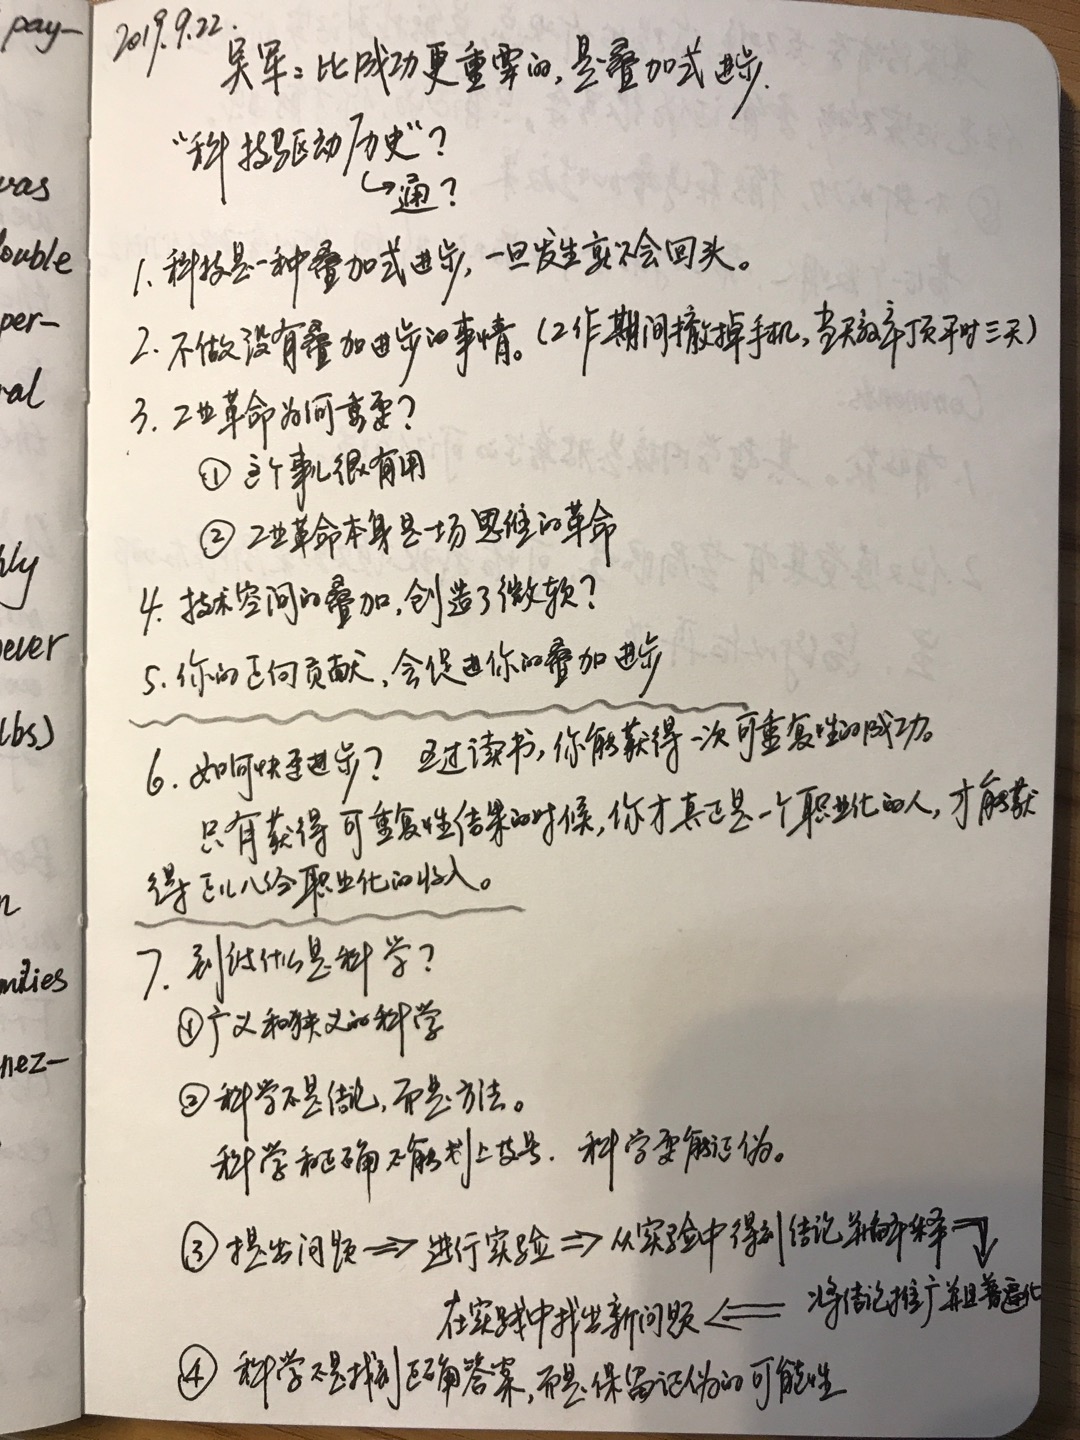 pay-
was
double
per-
ral
hly
ever
lbs)
n
milies
nez-
2019.9.22.
吴军：比成功更重要的，是叠加式进步.
“科技驱动历史”？
↳通？
1. 科技是一种叠加式进步，一旦发生就不会回头。
2. 不做没有叠加进步的事情。（工作期间撤掉手机，当天效率顶平时三天）
3. 工业革命为何重要？
① 这个事儿很有用
② 工业革命本身是一场思维的革命
4. 技术空间的叠加，创造了微软？
5. 你的正向贡献，会促进你的叠加进步
6. 如何快速进步？ 通过读书，你能获得一次可重复性的成功。
只有获得可重复性结果的时候，你才真正是一个职业化的人，才能获
得正儿八经职业化的收入。
7. 到底什么是科学？
① 广义和狭义的科学
② 科学不是结论，而是方法。
科学和正确不能划上等号. 科学要能证伪。
③ 提出问题 ⇒ 进行实验 ⇒ 从实验中得到结论并解释
将结论推广并且普遍化
在实践中找出新问题 ⇐
④ 科学不是找到正确答案，而是保留证伪的可能性